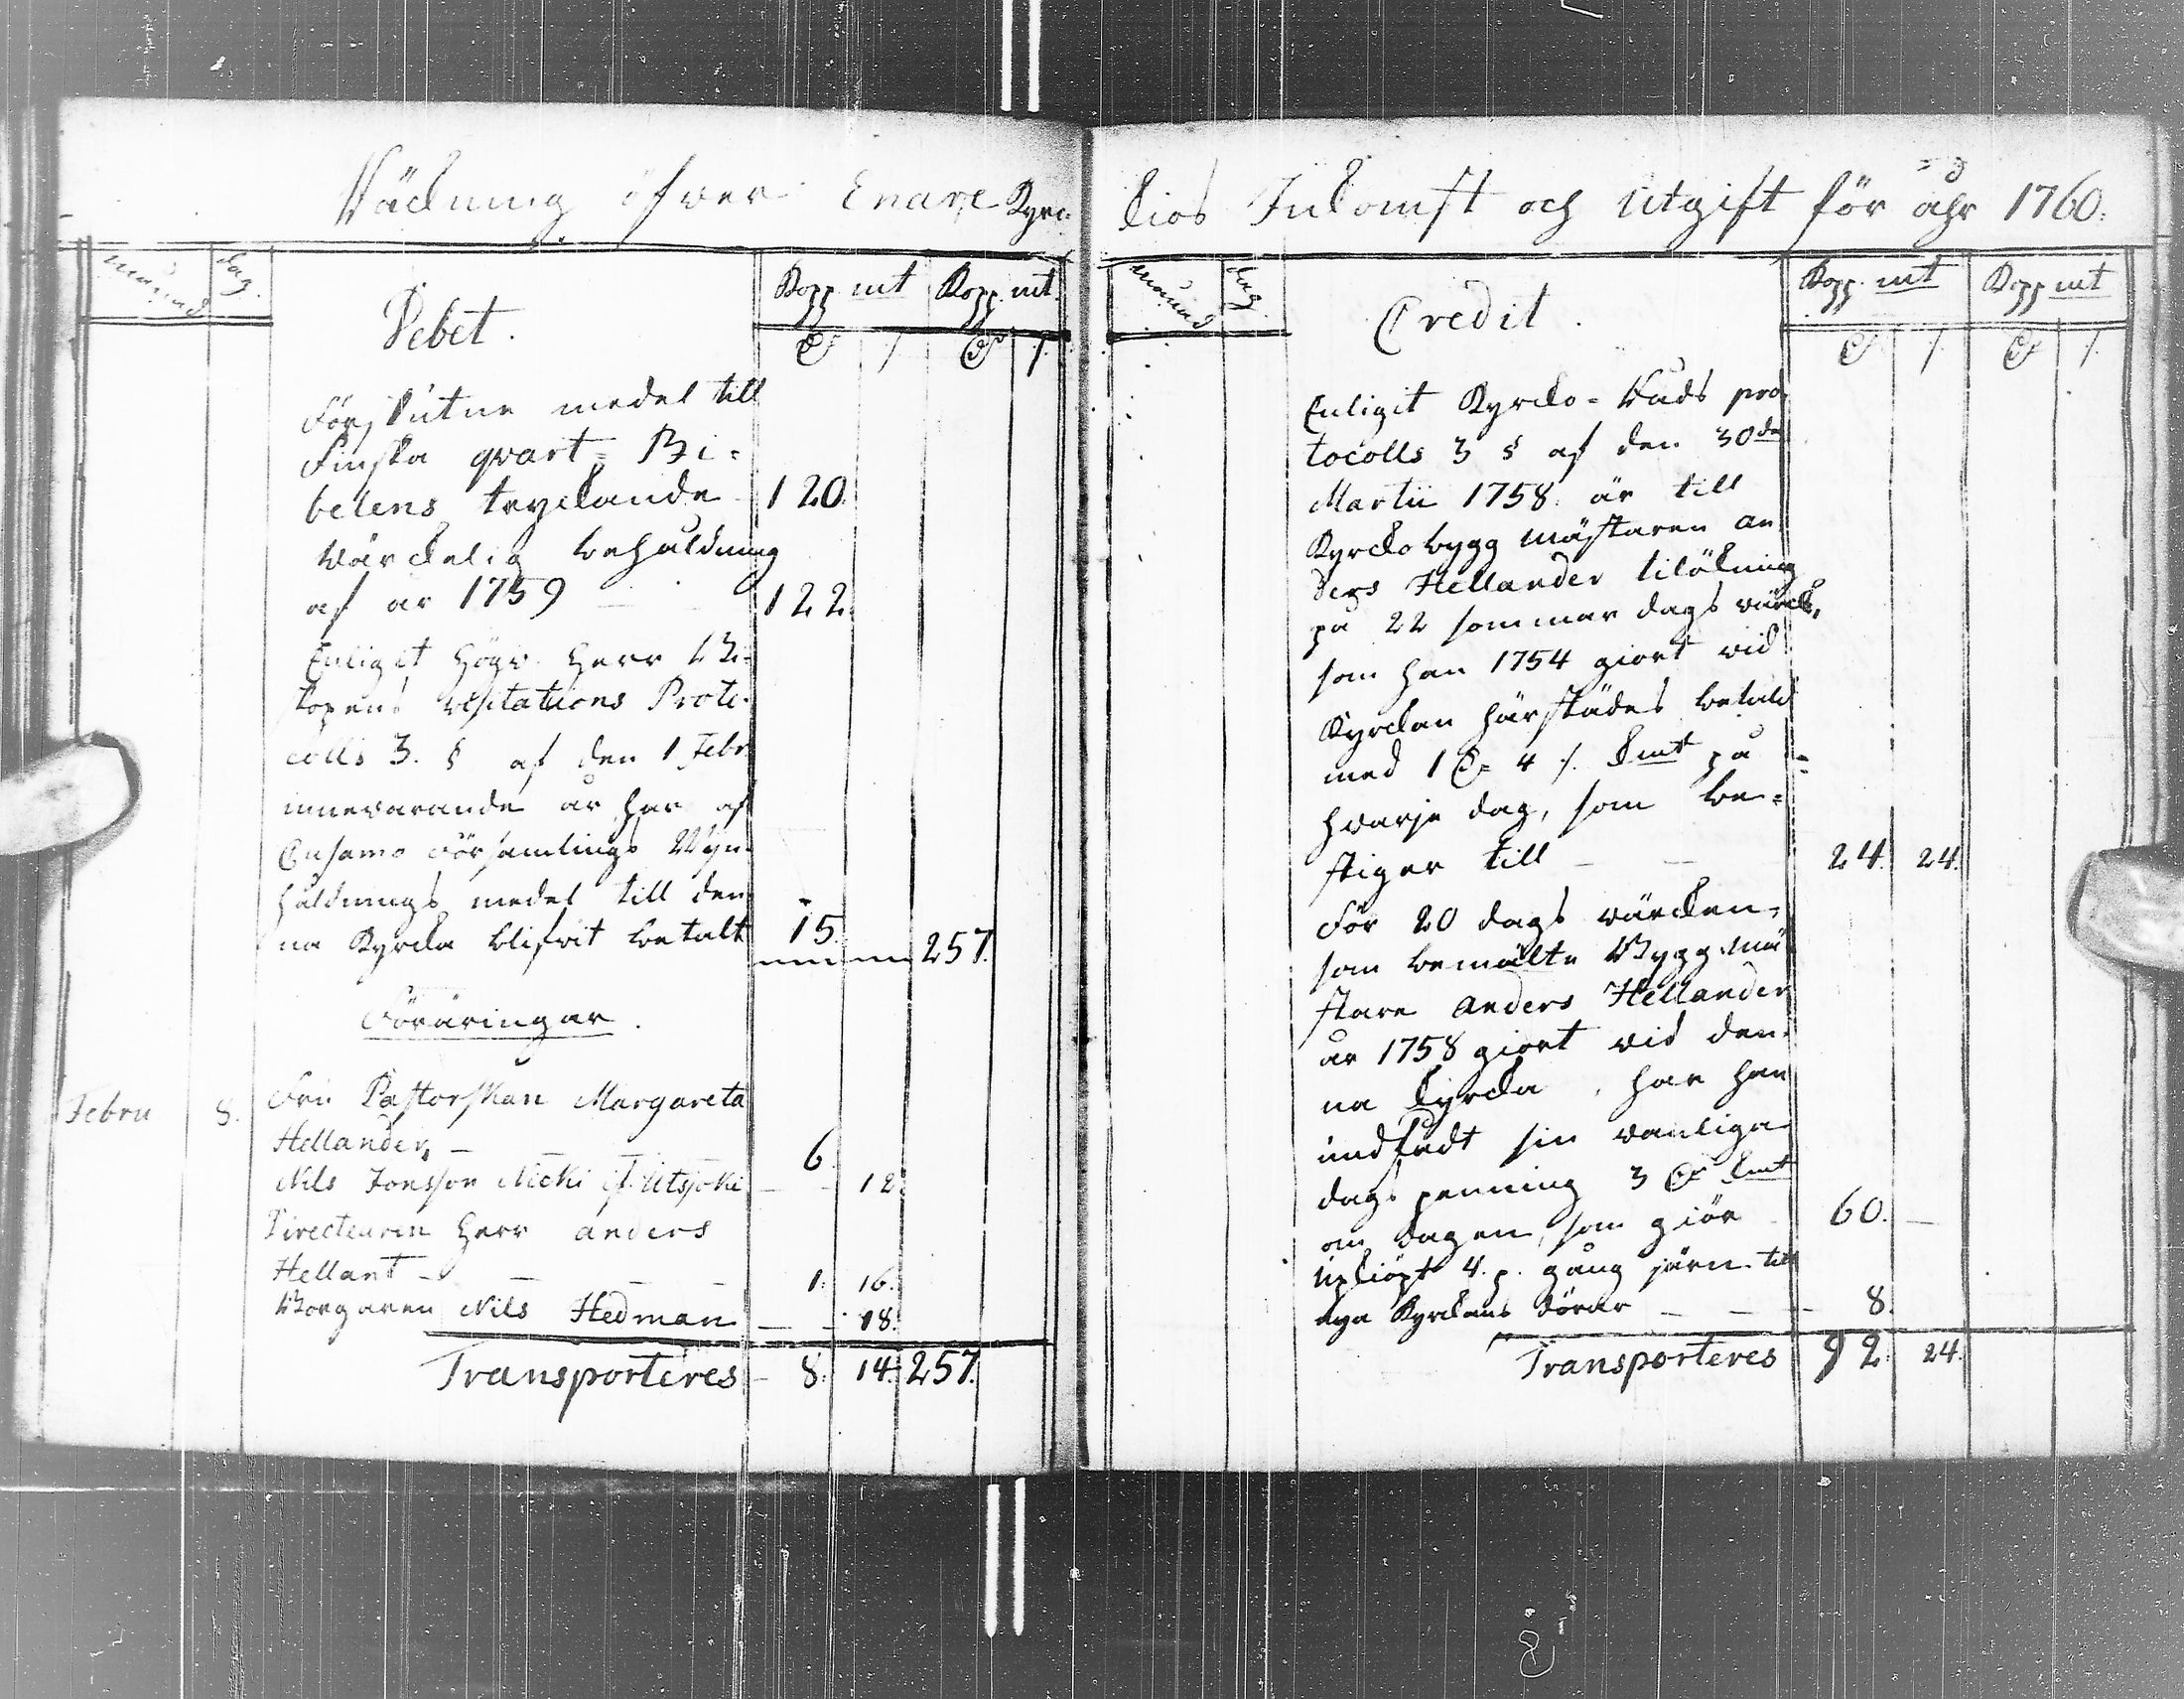 Räckning öfwer Enare Kyrc-
månad
dag.
Debet.
Kopp. mt
Kopp. mt.
Förskutne medel till
Finska qvart = Bi =
belens tryckande 120.
Wärckelig behåldning
af år 1759 — — 122.
Enligit Högv. Herr Bi-
skopens visitations Proto-
colls 3. § af den 1 Febr.
innevarande år har af
Cusamo Församlings Wijn-
håldnings medel till den-
na Kyrcka blifvit betalt 15. 257.
Föräringar.
Febru 8. Fru Pastorskan Margareta
Hellander, — — 6.
Nils Jonsson Nicki i Utsjoki — — 12.
Directeuren Herr Anders
Hellant — — — — 1. 16.
Borgaren Nils Hedman — — 18.
Transporteres — 8. 14. 257.
kios Inkomst och Utgift för åhr 1760.
månad
dag.
Credit.
Kopp. mt
Kopp mt
Enligit Kyrcko = Råds pro-
tocolls 3 § af den 30de
Martii 1758. är till
Kyrckobygg mästaren An-
ders Hellander tilökning
på 22 sommar dags värck,
som han 1754 giort vid
Kyrckan härstädes betald
med 1 Dr 4 /. kmt på
hvarje dag, som be =
stiger till — — 24. 24.
För 20 dags wärcken,
som bemälte Byggmä-
stare Anders Hellander
år 1758 giort vid den-
na kyrcka, har han
undfådt sin vanliga
dags penning 3 Dr kmt
om dagen, som giör 60. —
Upkiöpt 4. p. gång järn till
nya Kyrckans dörar — — — 8.
Transporteres 92. 24.